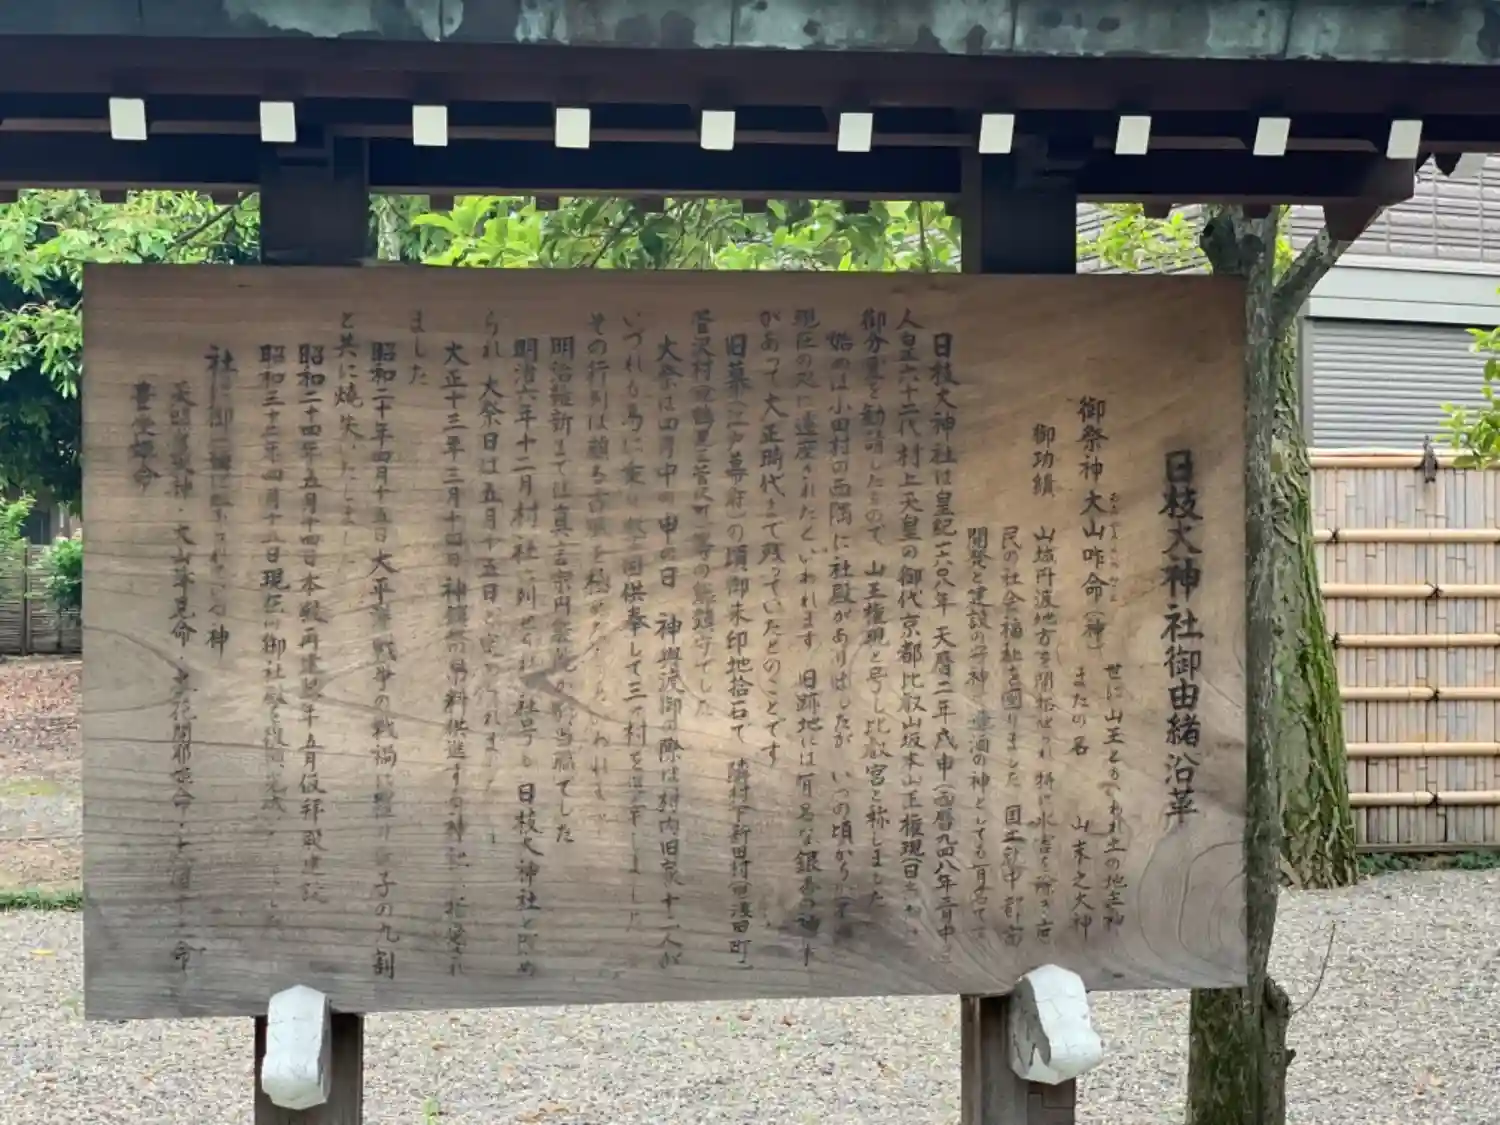 日枝大神社御由緒沿革
御祭神 大山咋命(神) 世に山王ともいわれ土の地主神
またの名 山末之大神
御功績 山城丹波地方を開拓せられ 特に水害を除き
民の社会福祉を図りました 国土
開発と建設の
日枝大神社は皇紀一六〇八年 天暦二年戊申(西暦九四八年)
人皇六十二代村上天皇の御代京都比叡山坂本山王権現(日
御分霊を勧請したもので 山王権現と号し比叡宮と称しました
始めは小田村の西隅に社殿がありましたが いつの頃か
現在の処に遷座されたといわれます 旧跡地には有名な銀杏の神木
があって大正時代まで残っていたとのことです
旧幕(江戸幕府)の頃御朱印地拾石で 隣村下新田村(現浅田町)
菅沢村(現 菅沢町)等の総鎮守でした
大祭は四月中の申の日 神輿渡御の際は村内旧家十二人が
いづれも馬に乗り 供奉して三ヶ村を
その行列は頗る古風を極めた
明治維新までは真言宗円 が別当職でした
明治六年十二月村社に列せられ 社号も 日枝大神社と改め
られ 大祭日は五月十五日と定められました
大正十三年三月十四日神饌幣帛料供進する神社に指定され
ました
昭和二十年四月十五日大平洋戦争の戦禍に罹り 氏子の九割
と共に焼失いたしました
昭和二十四年五月十四日本殿再建翌年五月仮拝殿建設
昭和三十三年四月十五日現在の御社殿を復興完成
社 御 神
天照皇大神・大山 命・木花開耶姫命・ 命
豊受姫命